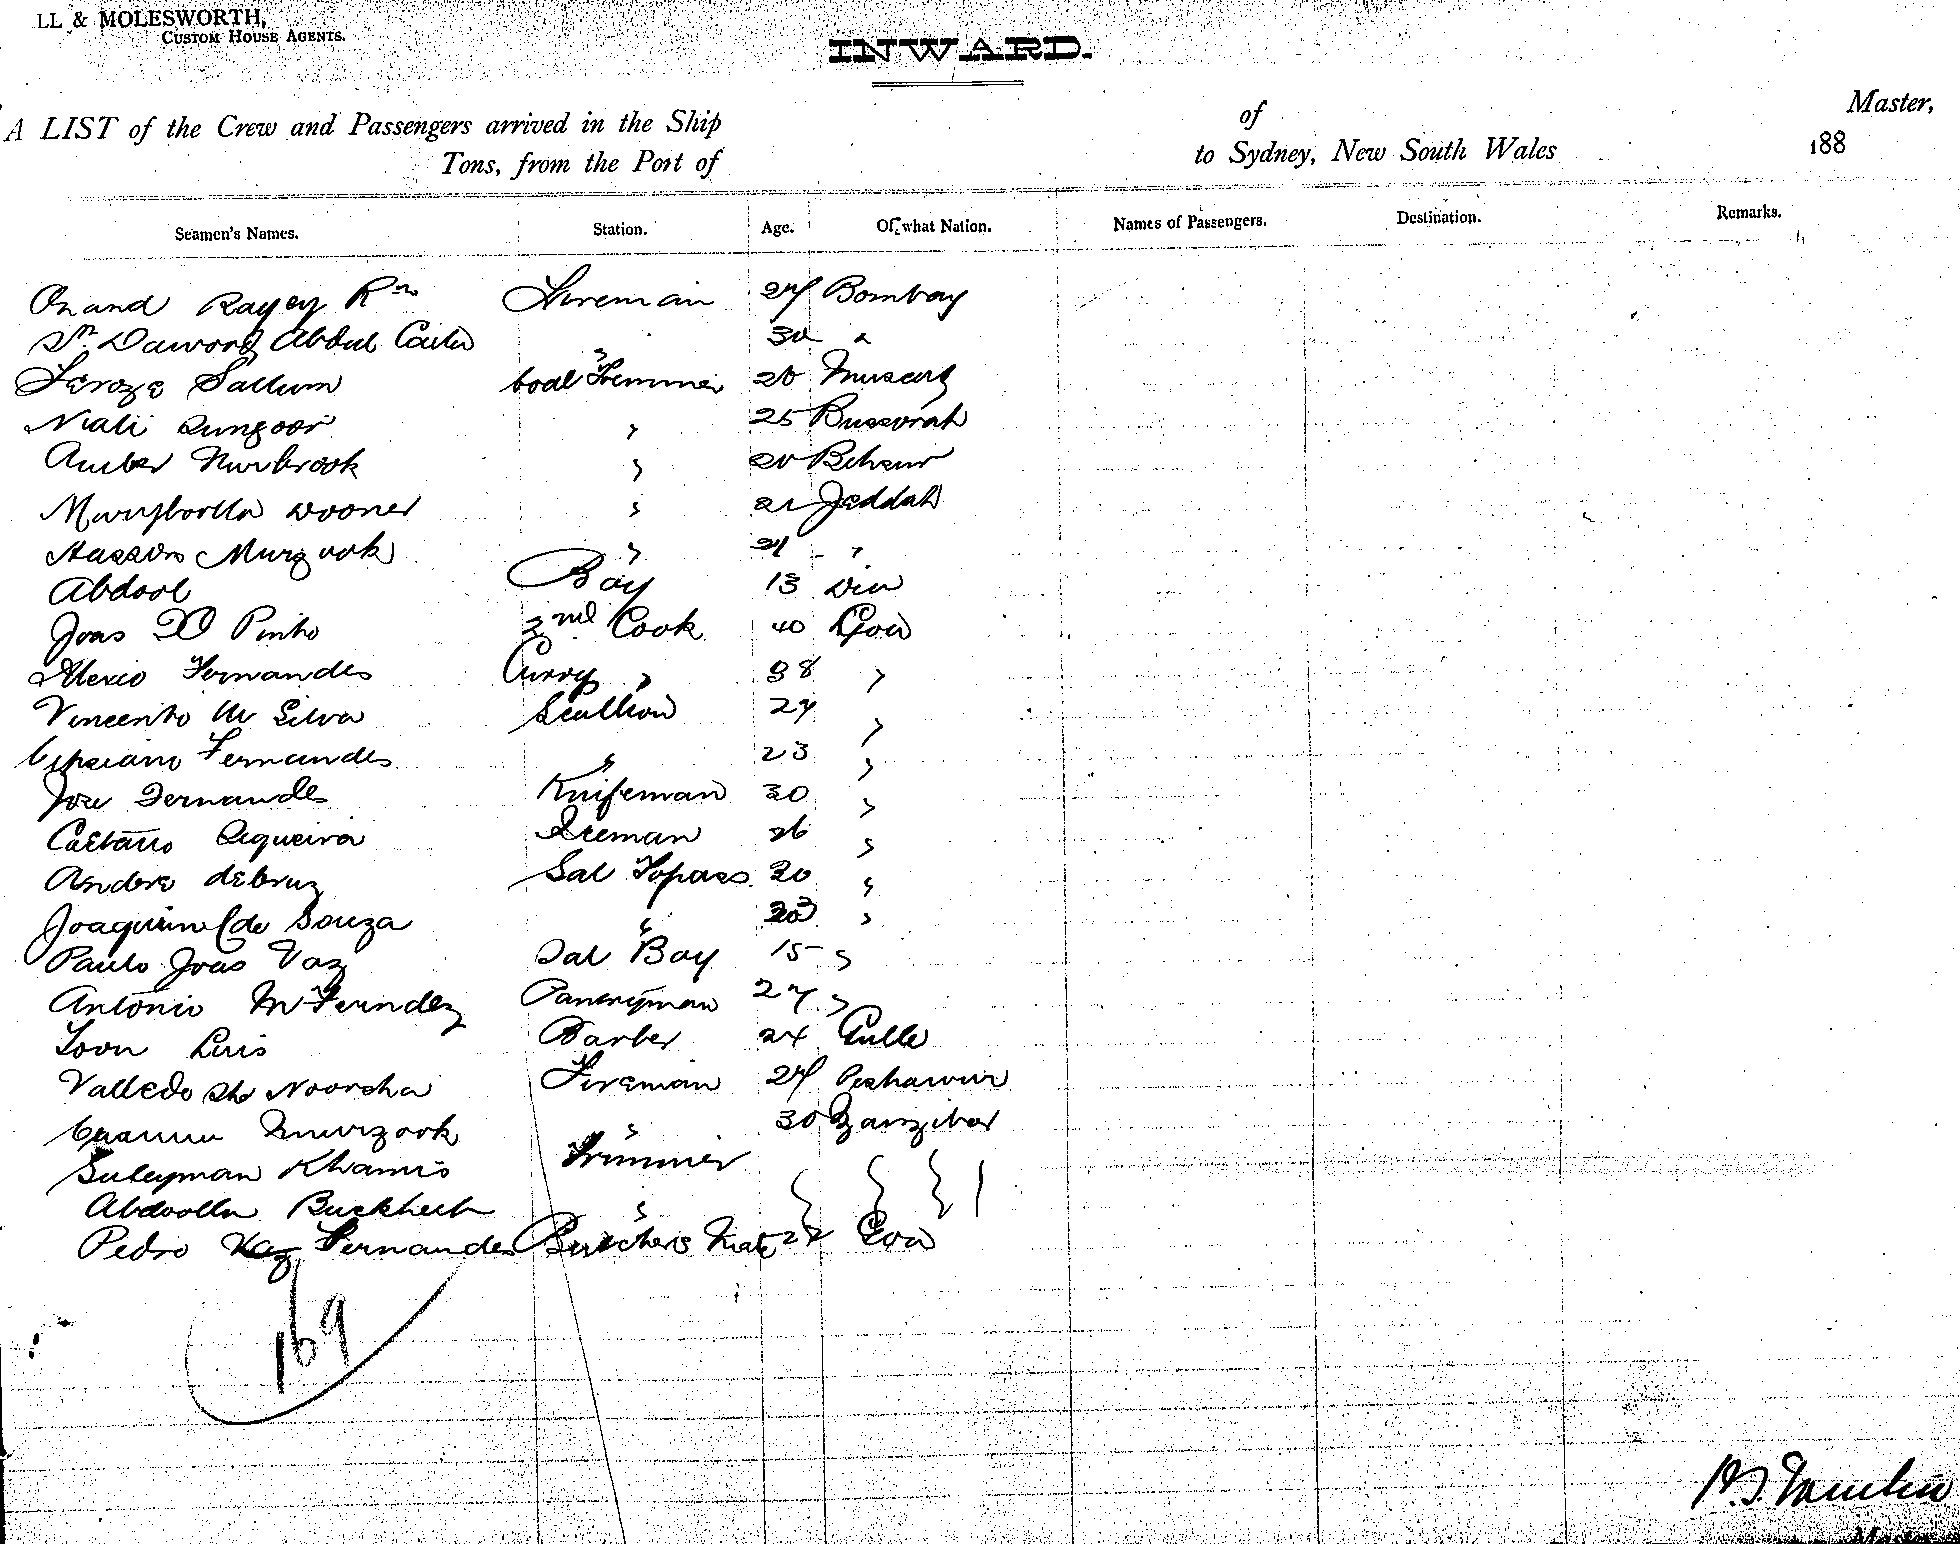 LL & MOLESWORTH,
CUSTOM HOUSE AGENTS.
INWARD.
A LIST of the Crew and Passengers arrived in the Ship of Master,
Tons, from the Port of to Sydney, New South Wales 188
Seamen's Names. Station. Age. Of what Nation. Names of Passengers. Destination. Remarks.
Fireman 27 Bombay
Abdul 30 "
Feroze Sallum Coal Trimmer 20 Muscat
25 Bussorah
Amber Murbrook " 20
" 21 Jeddah
Hassan Murzook " 21 "
Abdool Boy 13 Diu
Joao D Pinto 2nd Cook 40 Goa
Alexio Fernandes Curry " 38 "
Vincento M Silva Scullion 27 "
Cipriano Fernandes " 23 "
Jose Fernandes Knifeman 30 "
Caetano Sequeira Iceman 26 "
Andre deCruz Sal Topass 20 "
Joaquim de Souza " "
Paulo Joao Vaz Sal Boy 15 "
Antonio M Ferndez Pantryman 27 "
Luis Barber 24 Galle
Noorsha Fireman 27 Peshawur
Murzook " 30 Zanzibar
Suleyman Khamis Trimmer
Abdoolla "
Pedro Vaz Fernandes Butchers Mate 22 Goa
169